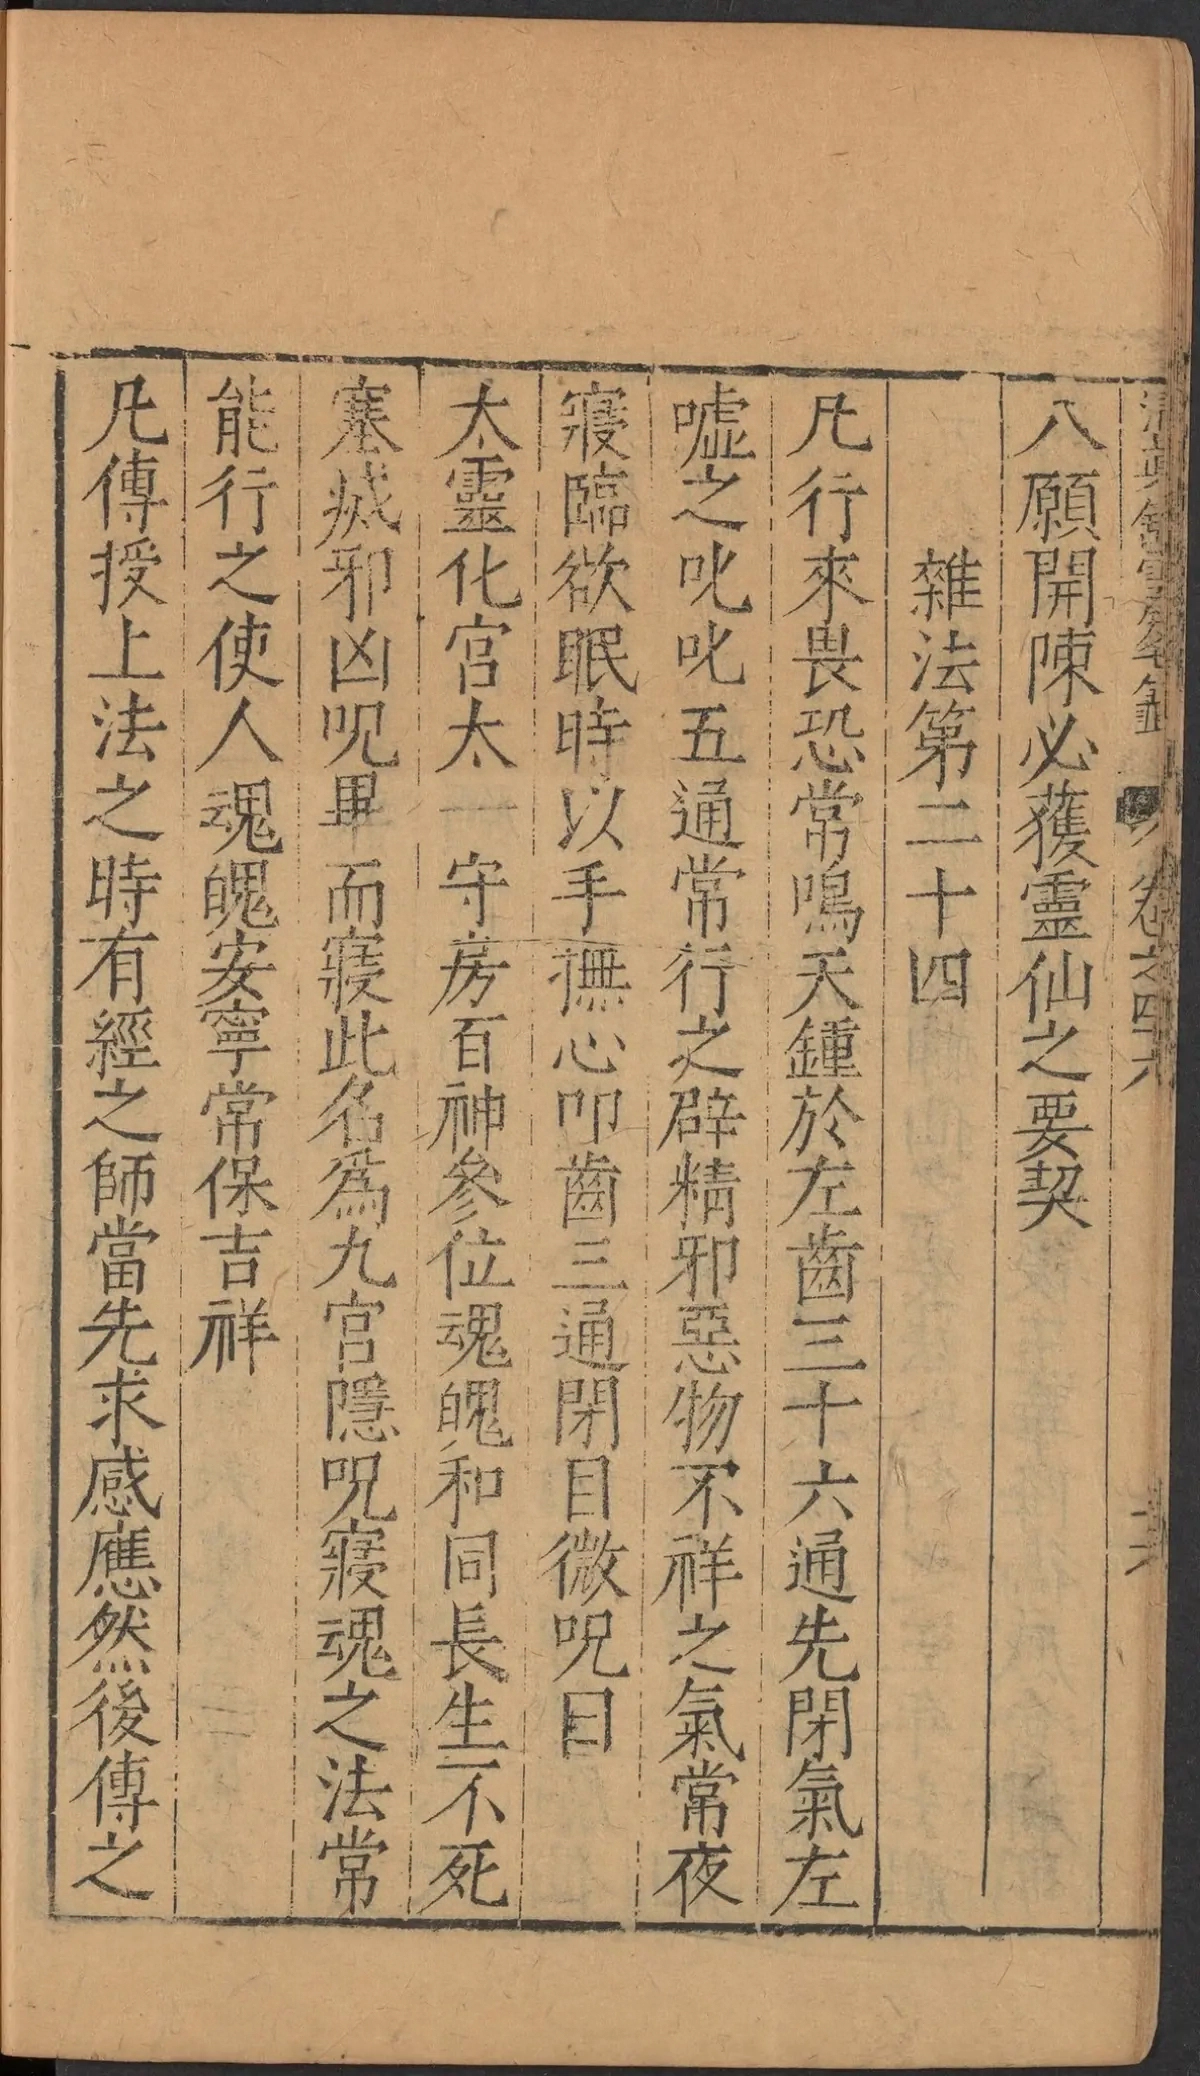 清真館雲笈七籤 卷之四六 六
八願開陳必獲靈仙之要契
雜法第二十四
凡行來畏恐常鳴天鍾於左齒三十六通先閉氣左
噓之叱叱五通常行之辟精邪惡物不祥之氣常夜
寢臨欲眠時以手撫心叩齒三通閉目微呪曰
太靈化宮太一守房百神參位魂魄和同長生不死
塞滅邪凶呪畢而寢此名爲九宮隱呪寢魂之法常
能行之使人魂魄安寧常保吉祥
凡傳授上法之時有經之師當先求感應然後傳之